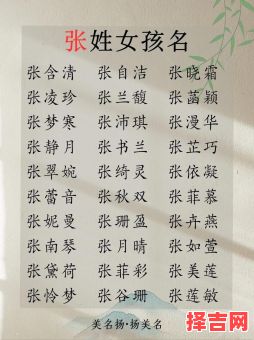 张姓女孩名
张含清 张自洁 张晓霜
张凌珍 张兰馥 张菡颖
张梦寒 张沛琪 张漫华
张静月 张书兰 张芷巧
张翠婉 张绮灵 张依凝
张蕾音 张秋双 张菲慕
张妮曼 张珊盈 张卉燕
张南琴 张月晴 张如萱
张黛荷 张菲彩 张美莲
张怜梦 张谷珊 张莲敏
美名扬·扬美名
择吉网